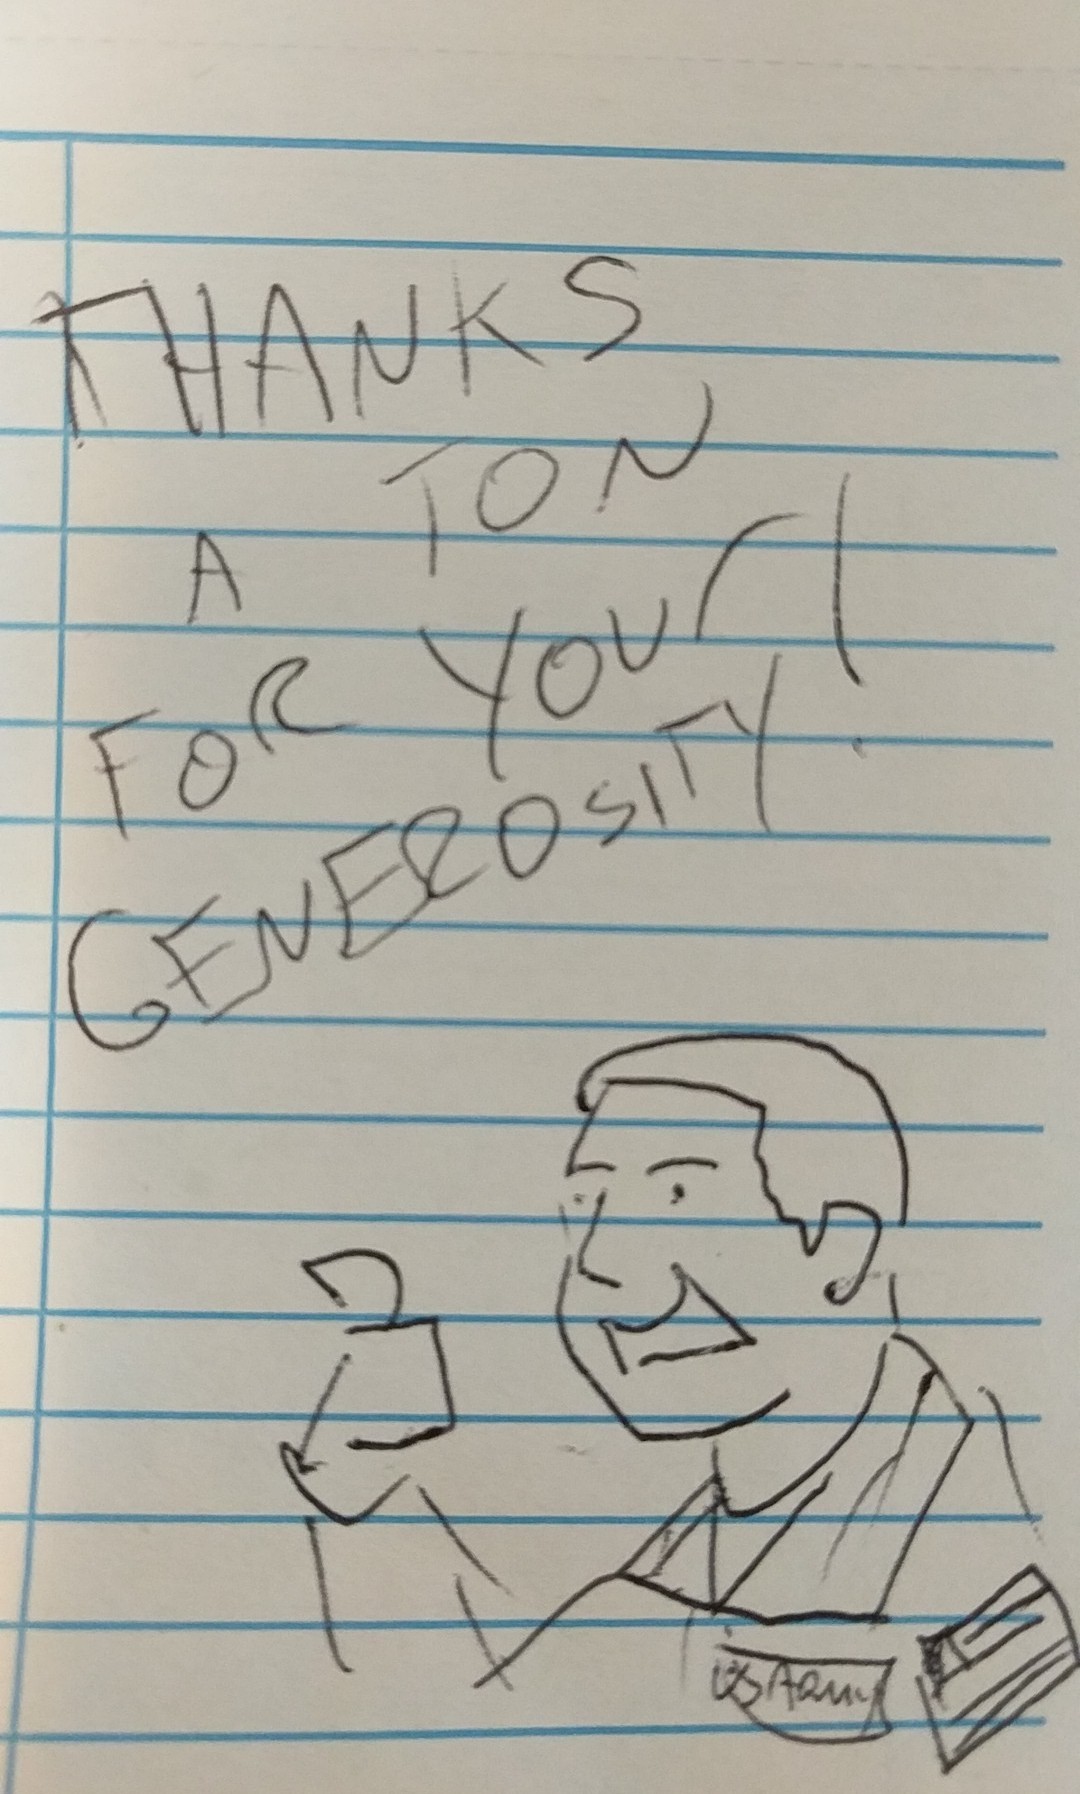 THANKS
A TON
FOR YOUr!
GENEROSITY
US Army